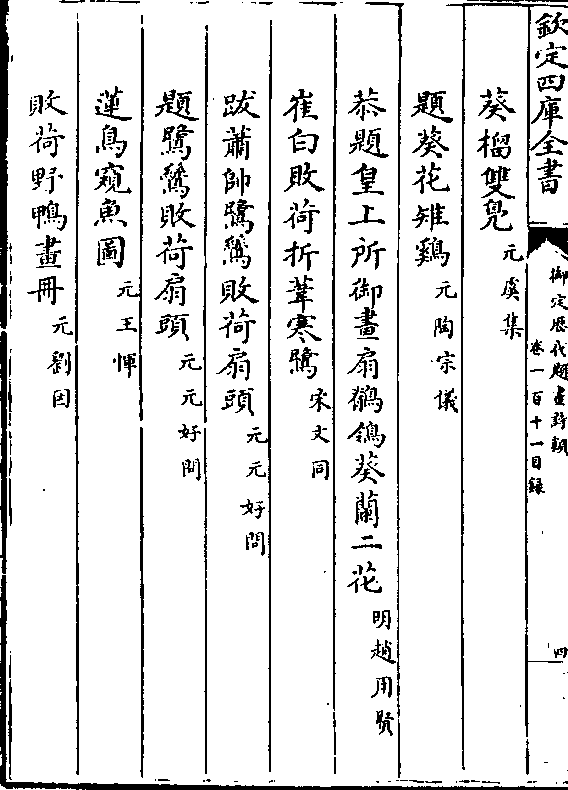 欽定四庫全書
御定歷代題畫詩類
卷一百十一目録
四
葵榴雙鳬 元虞集
題葵花雉鷄 元陶宗儀
恭題皇上所御畫扇鶺鴒葵蘭二花 明趙用賢
崔白敗荷折葦寒鷺 宋文同
跋蕭帥鷺鷥敗荷扇頭 元元好問
題鷺鷥敗荷扇頭 元元好問
蓮鳥窺魚圖 元王惲
敗荷野鴨畫冊 元劉因